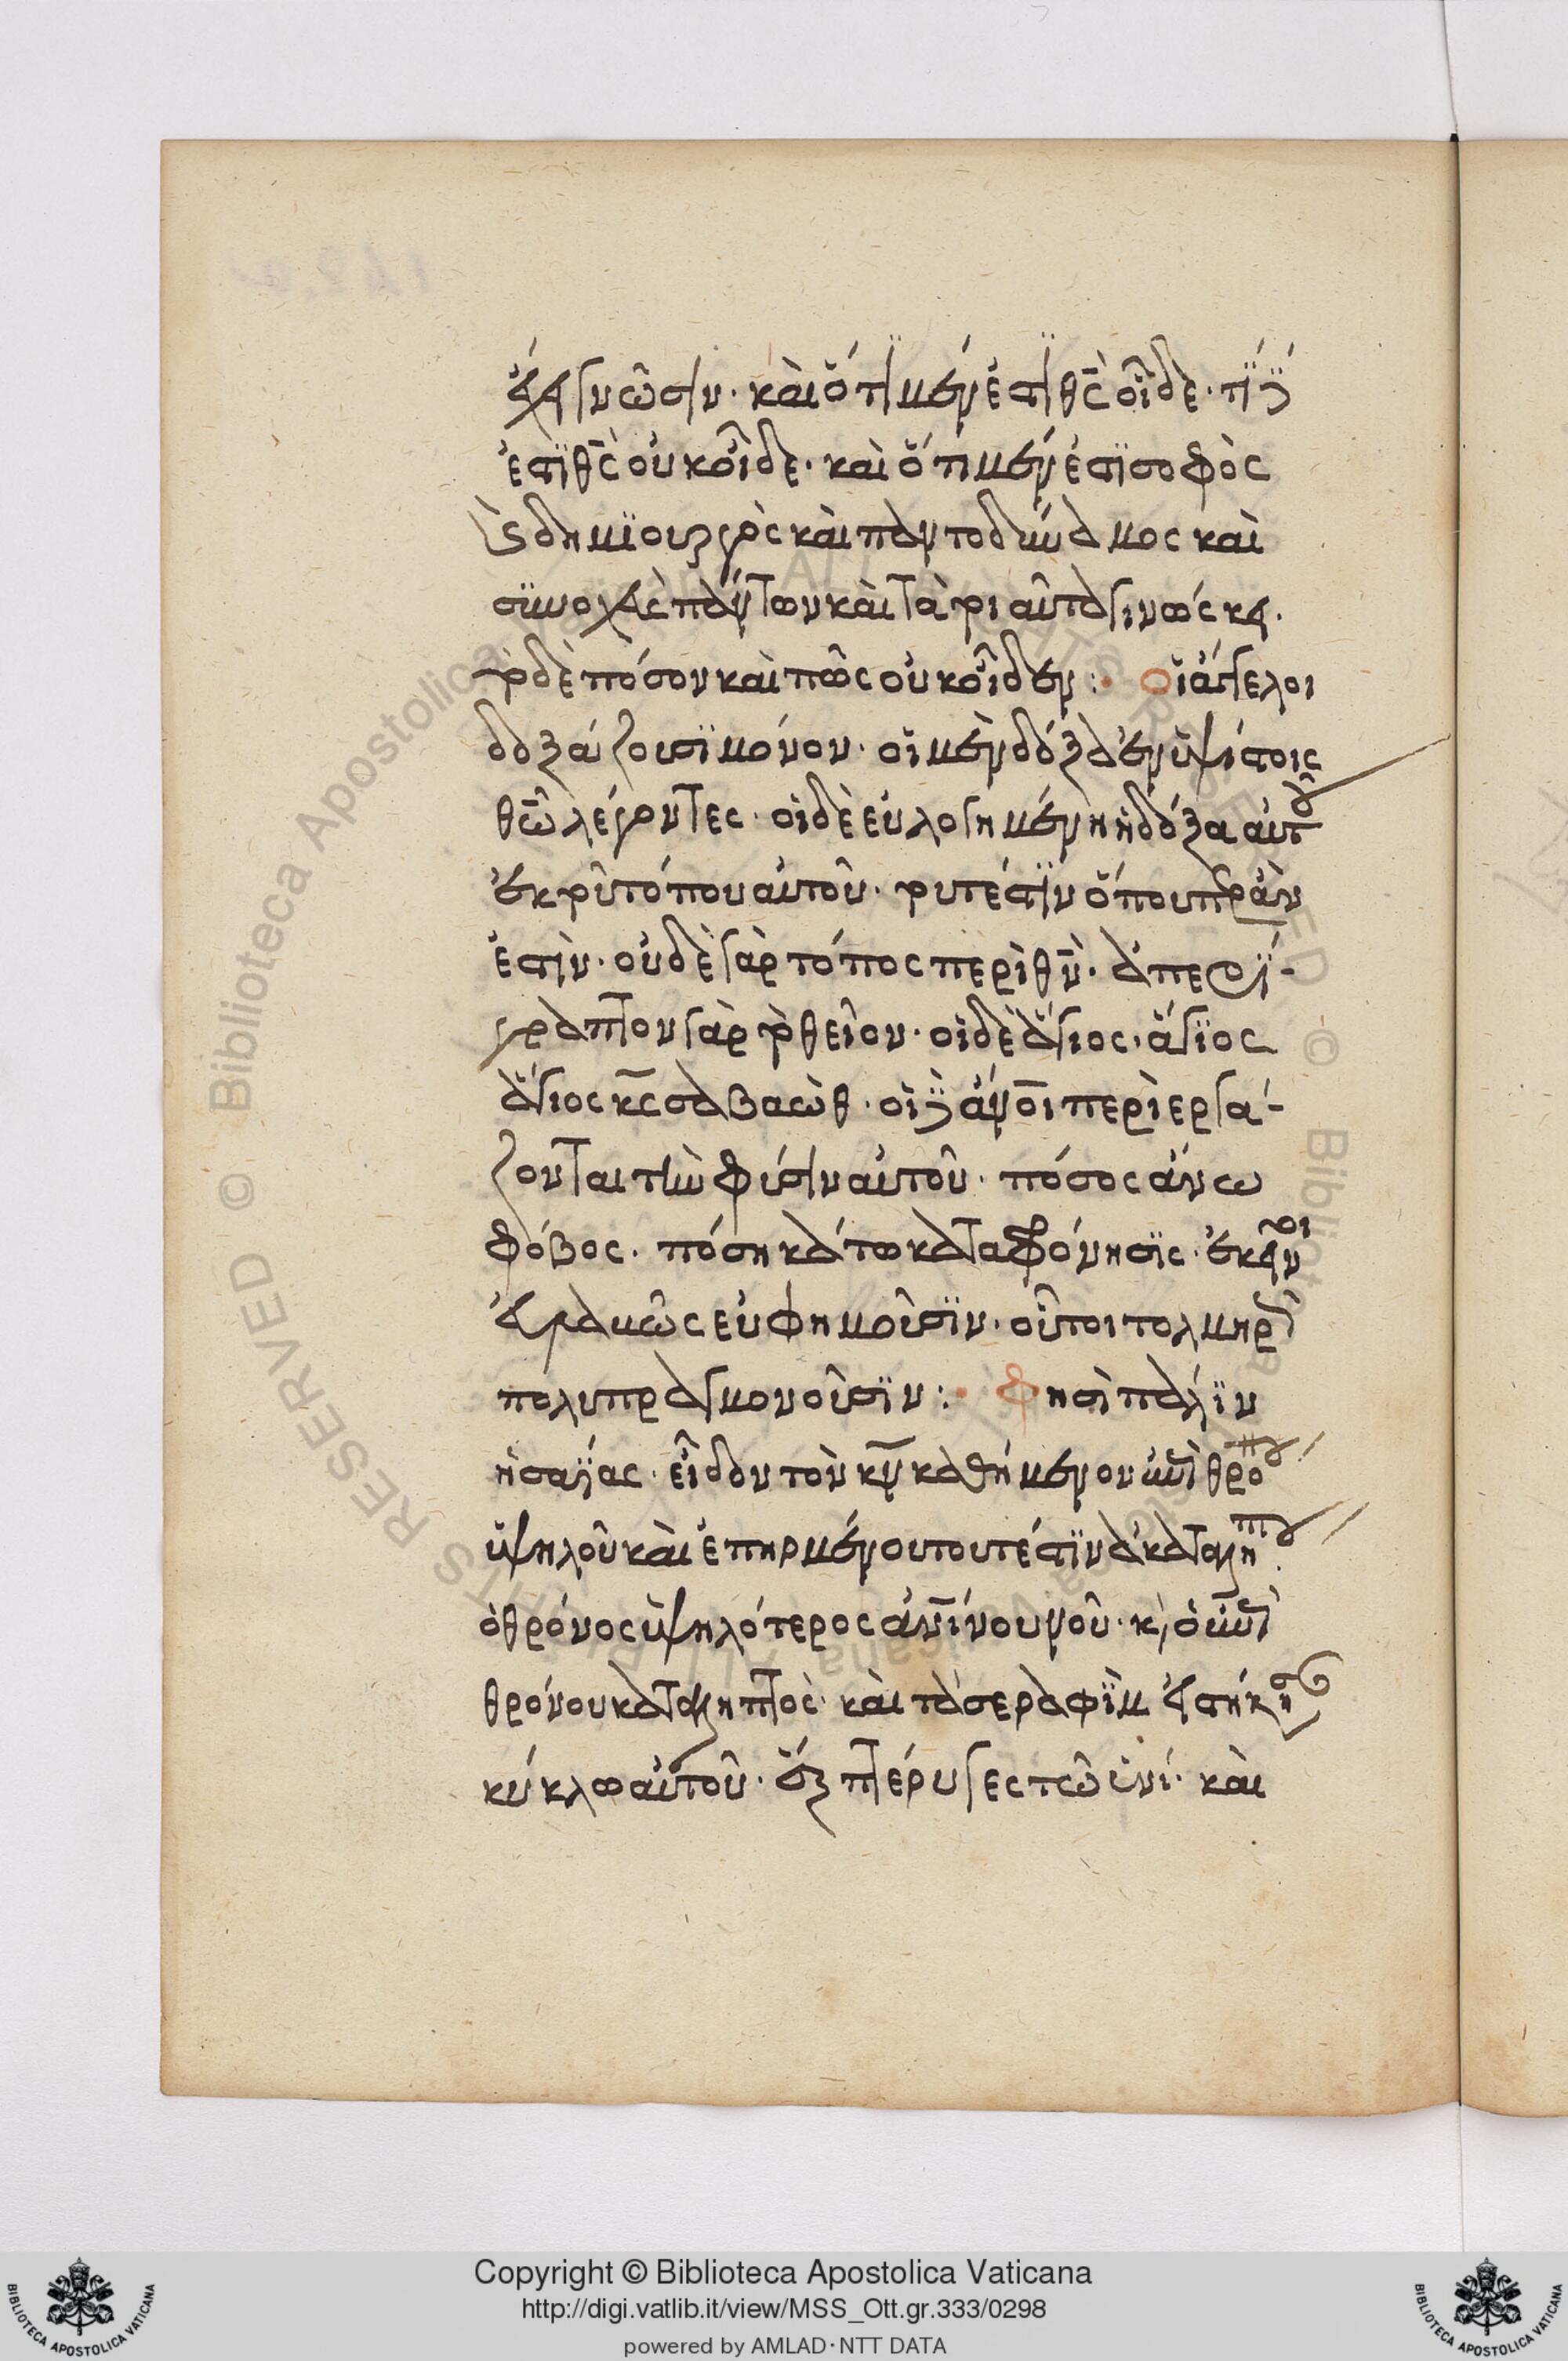 ἔχει γνῶσιν. καὶ ὅτι μέν ἐστι θς οἶδε. τί δέ
ἐστι θς οὐκ οἶδε. καὶ ὅτι μέν ἐστι σοφὸς
καὶ δημιουργὸς καὶ παντοδύναμος καὶ
συνοχεὺς πάντων καὶ τὰ τοιαῦτα γινώσκει.
τὸ δὲ πόσον καὶ πῶς οὐκ οἶδεν: Οἱ ἄγγελοι
δοξάζουσι μόνον. οἱ μὲν δόξα ἐν ὑψίστοις
θῶ λέγοντες. οἱ δὲ εὐλογημένη ἡ δόξα αὐτοῦ
ἐκ τοῦ τόπου αὐτοῦ. τουτέστιν ὅπου
ἐστὶν. οὐδὲ γὰρ τόπος περὶ θν. ἀπερί-
γραπτον γὰρ τὸ θεῖον. οἱ δὲ ἅγιος. ἅγιος
ἅγιος κς σαβαώθ. οἱ δὲ ἄνοι περιεργά-
ζονται τὴν φύσιν αὐτοῦ. πόσος ἄνω
φόβος. πόση κάτω καταφρόνησις. ἐκεῖνοι
εὐφημοῦσιν. οὗτοι τολμηροὶ
πολυπραγμονοῦσιν: Φησὶ πάλιν
ἡσαΐας. εἶδον τὸν κν καθήμενον ἐπὶ θρόνου
ὑψηλοῦ καὶ ἐπηρμένου τουτέστιν
ὁ θρόνος ὑψηλότερος ἀνίνου νοῦ. κ, ὁ ἐπὶ
θρόνου κατάληπτος. καὶ τὰ σεραφὶμ εἱστήκησαν
κύκλω αὐτοῦ. ἓξ πτέρυγες τῶ ἑνί. καὶ
Copyright © Biblioteca Apostolica Vaticana
http://digi.vatlib.it/view/MSS_Ott.gr.333/0298
powered by AMLAD·NTT DATA